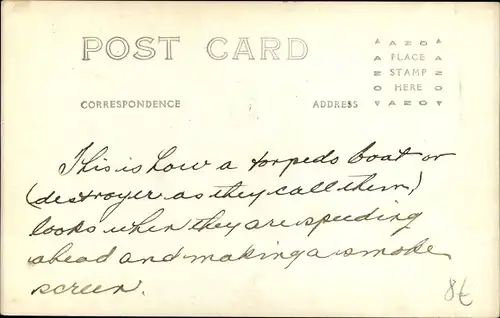 POST CARD
AZO
PLACE
STAMP
HERE
AZO
CORRESPONDENCE ADDRESS
This is how a torpedo boat or
(destroyer as they call them,)
looks when they are speeding
ahead and making a smoke
screen.